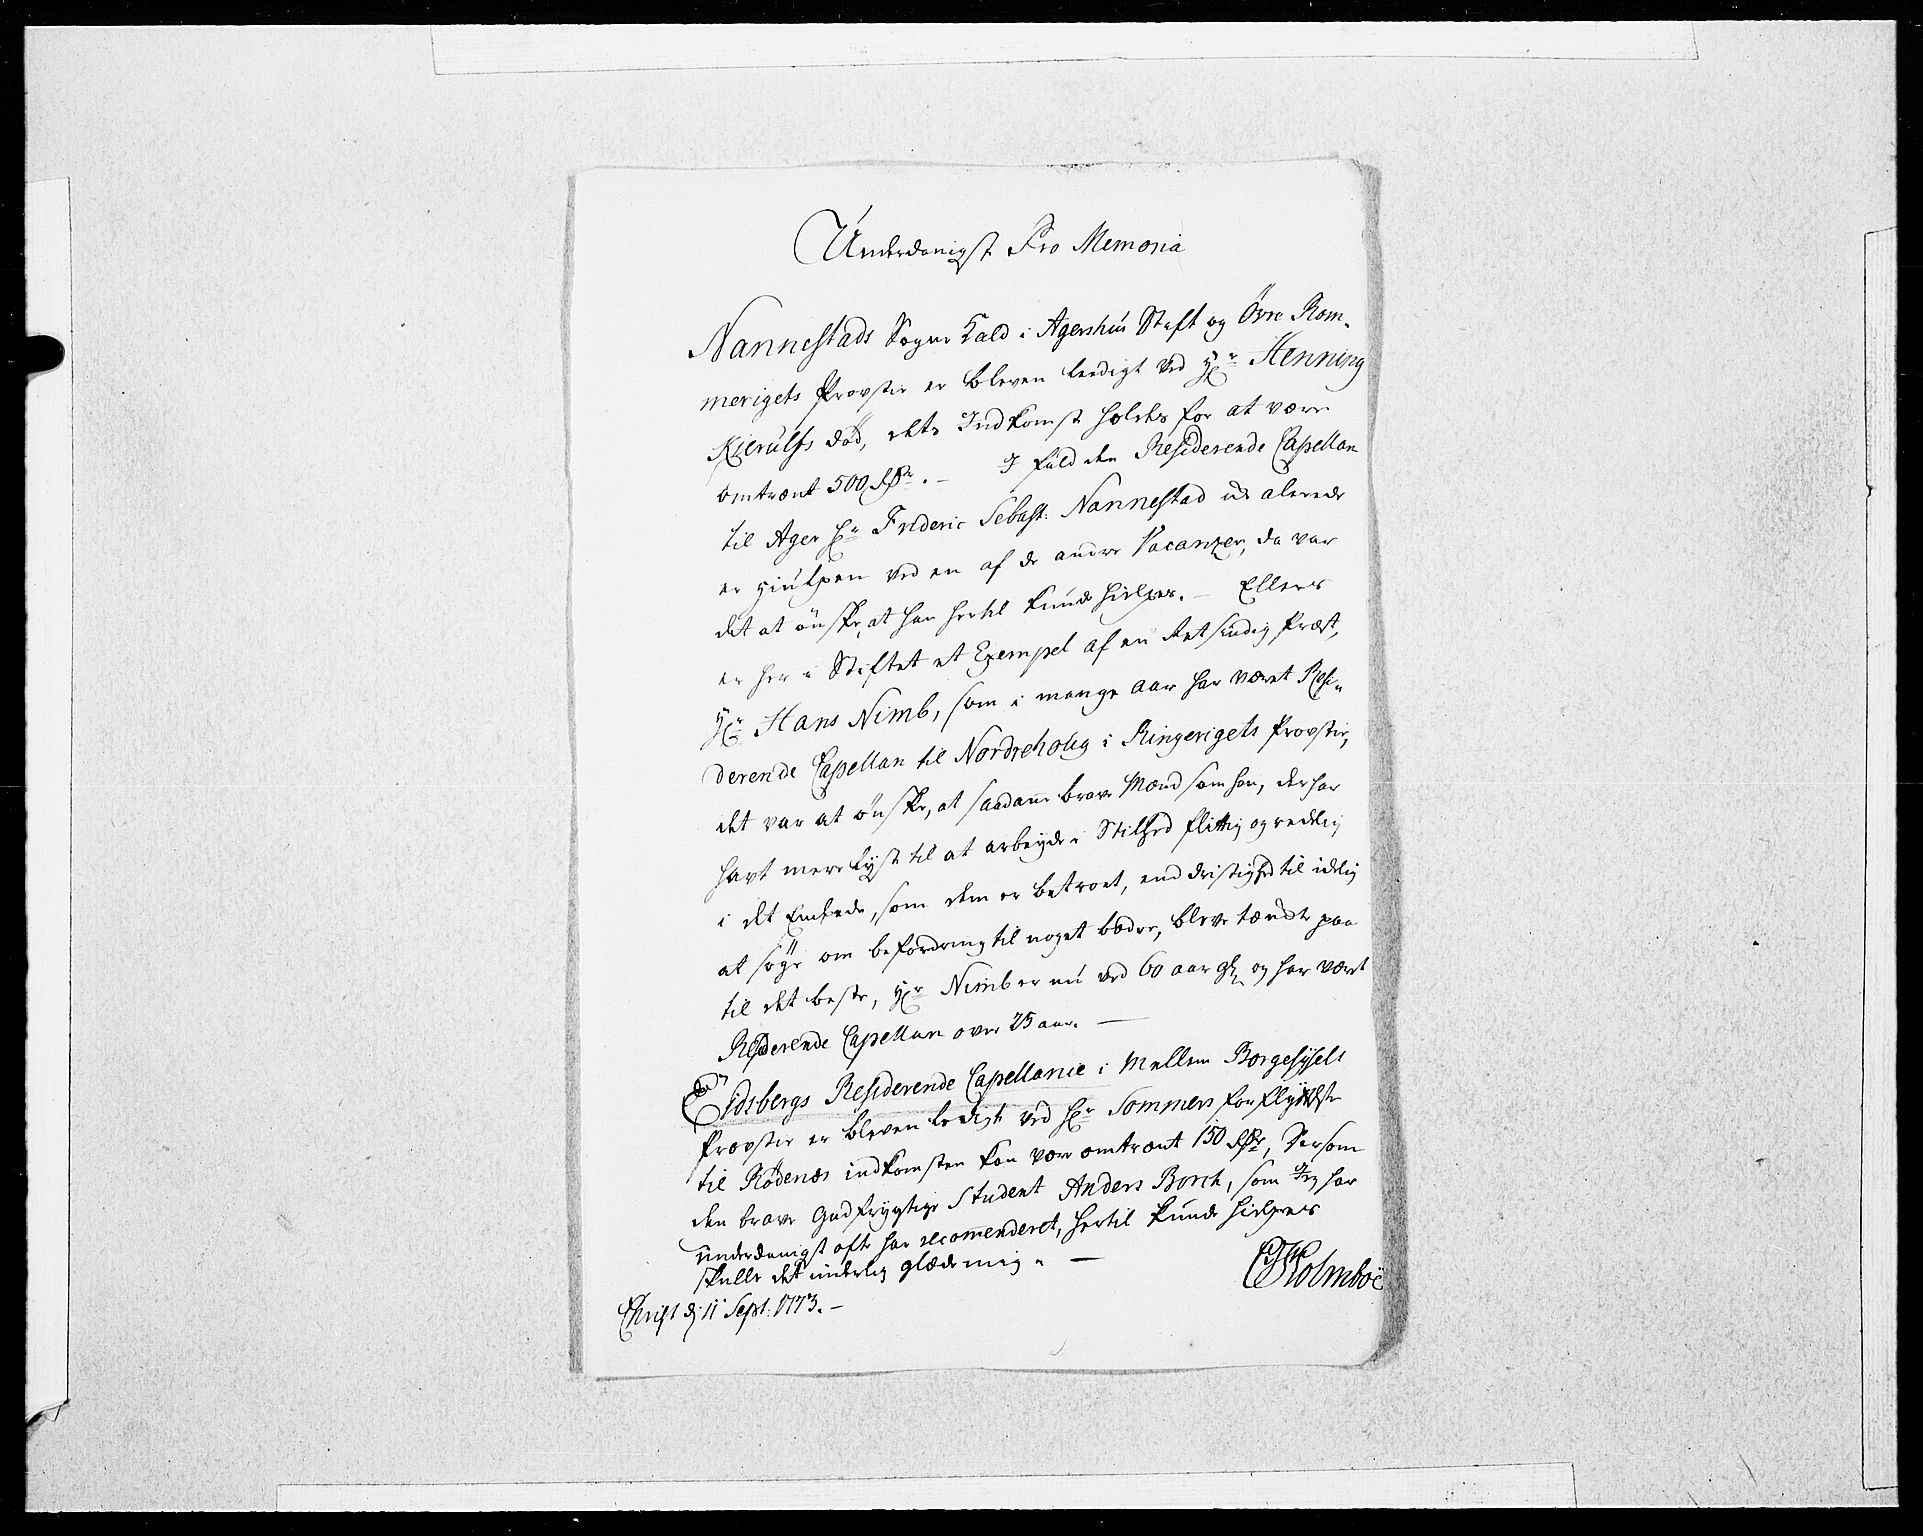 Underdanigst Pro Memoria
Nannestads Sogne Kald i Agershus Stift og Övre Rom-
merigets Provstie er bleven leedigt ved Hr Henning
Kierulfs död, dets Indkomst holdes for at være
omtrent 500 Rdr. – I fald den Residerende Capellan
til Ager Hr Frideric Sebast: Nannestad ei alerede
er hiulpen ved en af de andre Vacanzer, da var
det at önske, at han hertil kunde hielpes. – Ellers
er her i Stiftet et Exempel af en Retsindig Præst,
Hr Hans Nimb, som i mange aar har været Resi-
derende Capellan til Nordrehoug i Ringerigets Provstie,
det var at önske, at saadanne brave Mænd som han, der har
havt mere Lyst til at arbeyde i Stilhed flittig og redelig
i det Embede, som dem er betroet, end dristighed til idelig
at söge om befordring til noget bedre, bleve tænkte paa
til det beste, Hr Nimb er nu ved 60 aar gl og har været
Residerende Capellan over 25 aar. —
Eidsbergs Residerende Capellanie i Mellem Borgesyssels
Provstie er bleven Ledigt ved Hr Sommers forflyttelse
til Rödenæs indkomsten kan være omtrent 150 Rdr, Dersom
den brave Gudfrygtige Student Anders Borch, som Jeg har
underdanigst ofte har recommenderet, hertil kunde hielpes
skulle det inderlig glæde mig. —
CHolmboe
Christ d 11 Sept: 1773. –